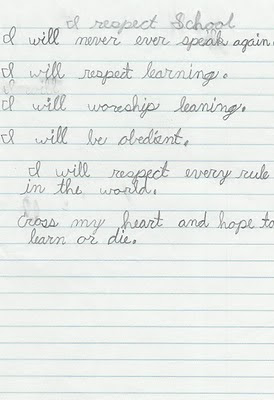 I respect School
I will never ever speak again.
I will respect learning.
I will worship leaning.
I will be obedient.
I will respect every rule
in the world.
Cross my heart and hope to
learn or die.